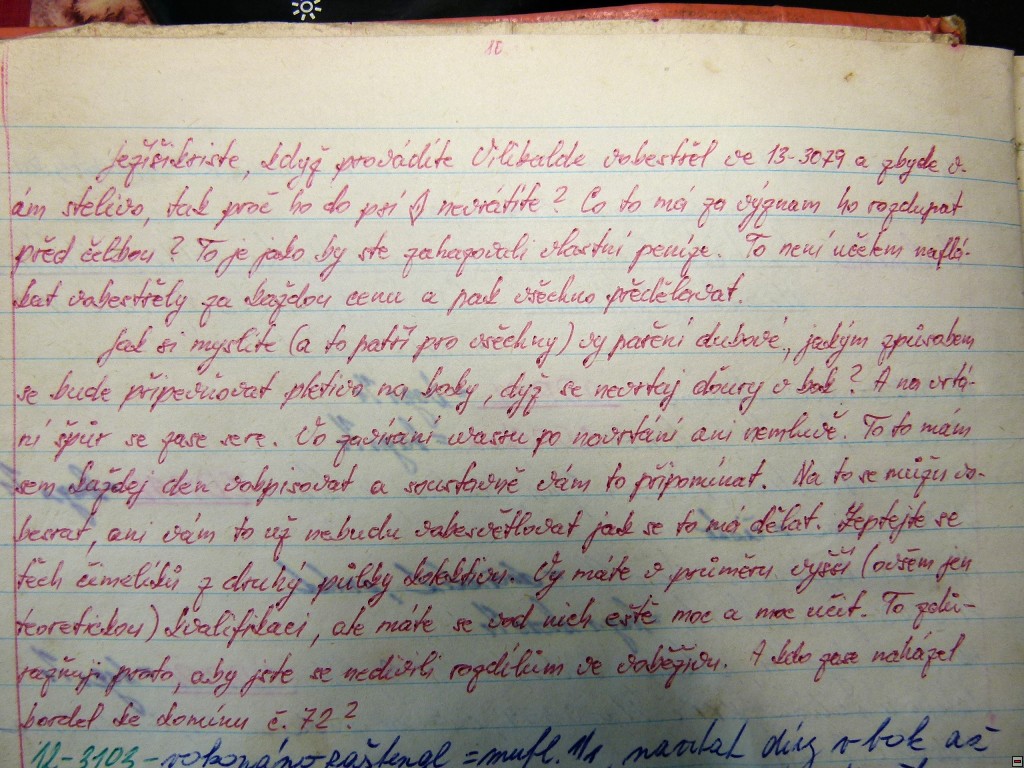 Ježíšikriste, když provádíte Vilibalde vobestřel ve 13-3079 a zbyde v-
ám stelivo, tak proč ho do psí nevrátíte? Co to má za význam ho rozdupat
před čelbou? To je jako by ste zahazovali vlastní peníze. To není účelem naflá-
kat vobestřely za každou cenu a pak všechno předělávat.
Jak si myslíte (a to patří pro všechny) vy pařeni dubové, jakým způsobem
se bude připevňovat pletivo na boky, dyž se nevrtaj dóury v bok? A na vrtá-
ní špür se zase sere. Vo zavírání wassru po navrtání ani nemluvě. To to mám
sem každej den vobpisovat a soustavně vám to připomínat. Na to se můžu vo-
besrat, ani vám to už nebudu vobesvětlovat jak se to má dělat. Zeptejte se
těch čimelíků z druhý půlky kolektivu. Vy máte v průměru vyšší (ovšem jen
teoretickou) kvalifikaci, ale máte se vod nich eště moc a moc učit. To zdů-
razňuji proto, aby jste se nedivili rozdílům ve voběživu. A kdo zase naházel
bordel ke komínu č. 72?
12-3103 - = mufl. 1/1, navrtat díry v bok až